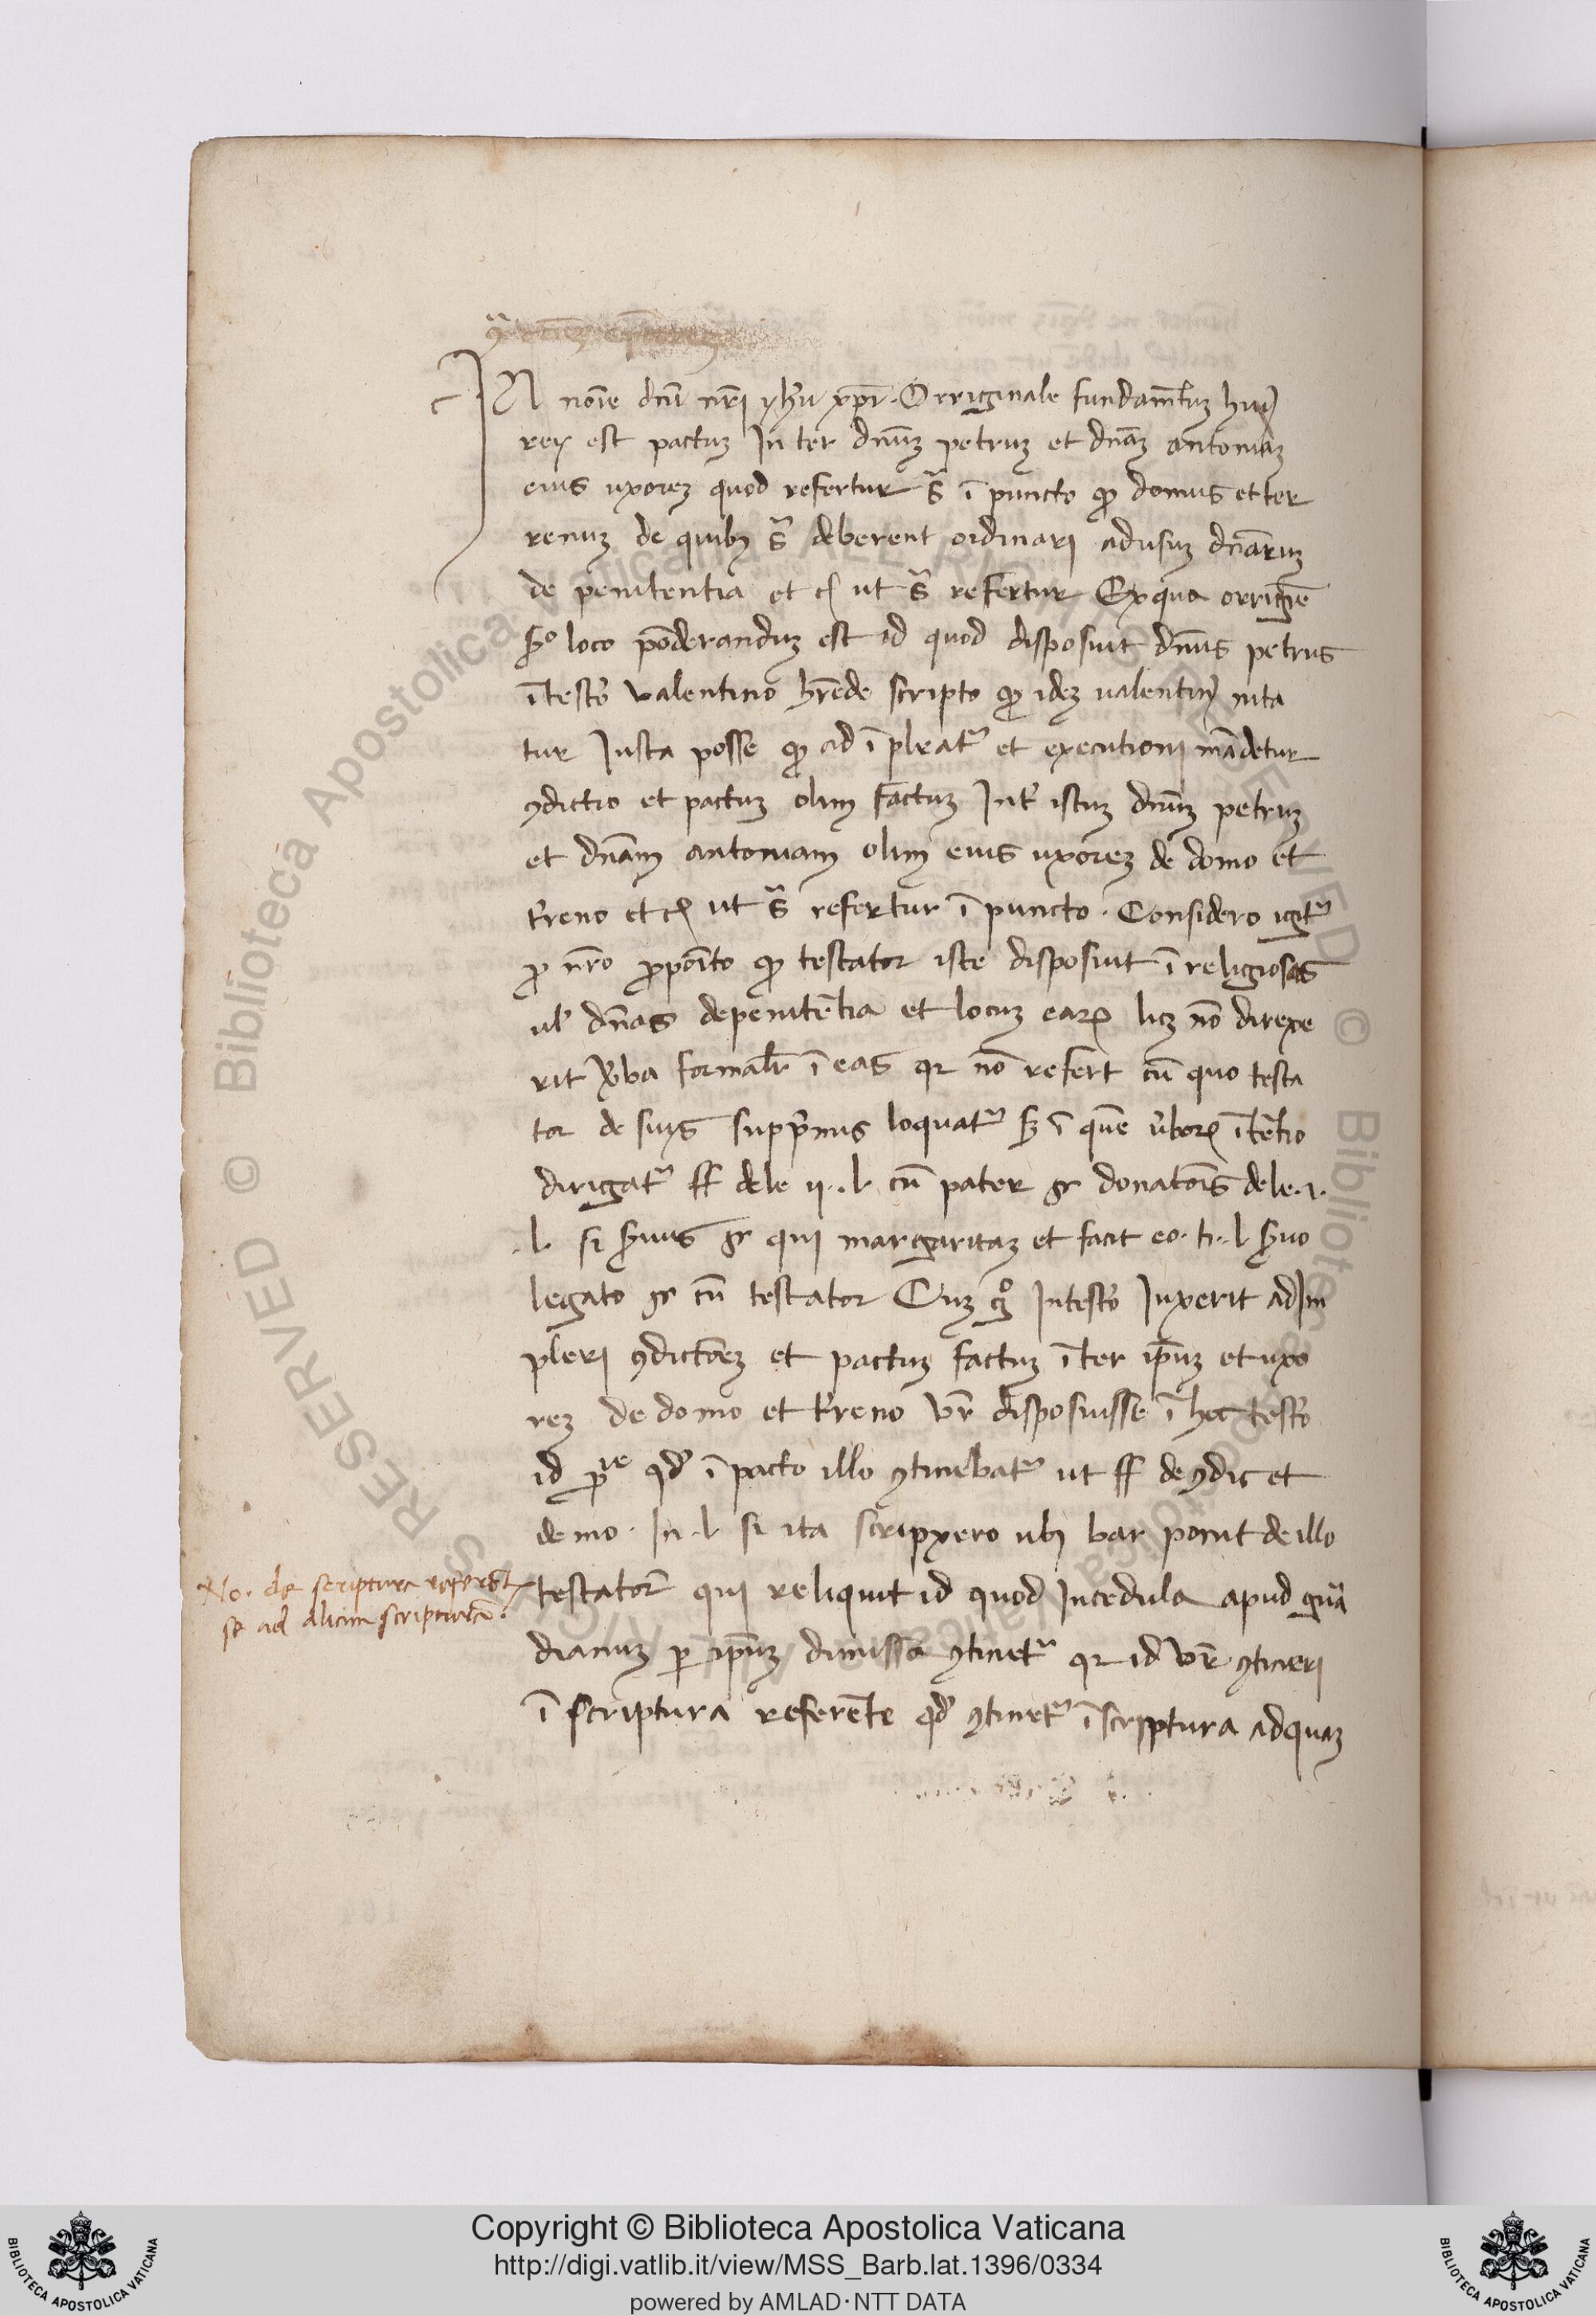 IN noīe dnī nr̄i yhū xp̄i. Orriginale fundam̄tuȝ huiꝰ
rei est pactuȝ Inter dnūȝ petruȝ et dnāȝ antoniaȝ
eius uxoreȝ quod refertur sͣ ī puncto ꝙ domus et ter
renuȝ de quibꝫ sͣ deberent ordinari adusuȝ dnāruȝ
de penitentia et cͣ ut sͣ refertur Ex qua orrigīe
sͦ loco pōderanduȝ est id quod disposuit dnūs petrus
ī testō valentino hr̄ede scripto ꝙ ideȝ ualentinꝰ nita
tur Iusta posse ꝙ ad īpleat᷑ et executioni mādetur
ꝯdictio et pactuȝ olim factuȝ Int̄ istuȝ dnūȝ petruȝ
et dnām antoniam olim eius uxoreȝ de domo et
t̄reno et cͣ ut sͣ refertur ī puncto. Considero igit᷑
ꝓ nr̄o ꝓpoīto ꝙ testator iste disposuit ī religiosas
ul̄ dn̄as de penitētia et locuȝ earꝝ licȝ nō direxe
rit v̄ba formalr̄ ī eas qꝛ nō refert cū quo testa
tor de suis supp̄mis loquat᷑ sȝ ī quē v̄borꝝ ītētio
dirigat᷑ ff de le ii. .l. cū pater §r donatōis de le. .1.
.l. si s̄uus §r qui margaritaȝ et facit eo. ti. .l s̄uo
legato §r cū testator Cuȝ gͦ Intestō Iuxerit ad Im
pleri ꝯdictōeȝ et pactuȝ factuȝ īter ip̄uȝ et uxo
reȝ de domo et t̄reno vr̄ disposuisse ī hoc testō
id ꝑ qd̄ ī pacto illo ꝯtinebat᷑ ut ff de ꝯdic et
demo. In .l. si ita scripxero ubi bar ponit de illo
testator̄ qui reliquit id quod Incedula apud guā
dianuȝ ꝑ ip̄uȝ dimissa ꝯtinet᷑ qꝛ id vr̄ ꝯtineri
ī scriptura referēte qd̄ ꝯtinet᷑ ī scriptura adquaȝ
No. de scriptura referēte
se ad aliam scripturā.
RESERVED © Biblioteca Apostolica Vaticana
Copyright © Biblioteca Apostolica Vaticana
http://digi.vatlib.it/view/MSS_Barb.lat.1396/0334
powered by AMLAD·NTT DATA
BIBLIOTECA APOSTOLICA VATICANA
BIBLIOTECA APOSTOLICA VATICANA